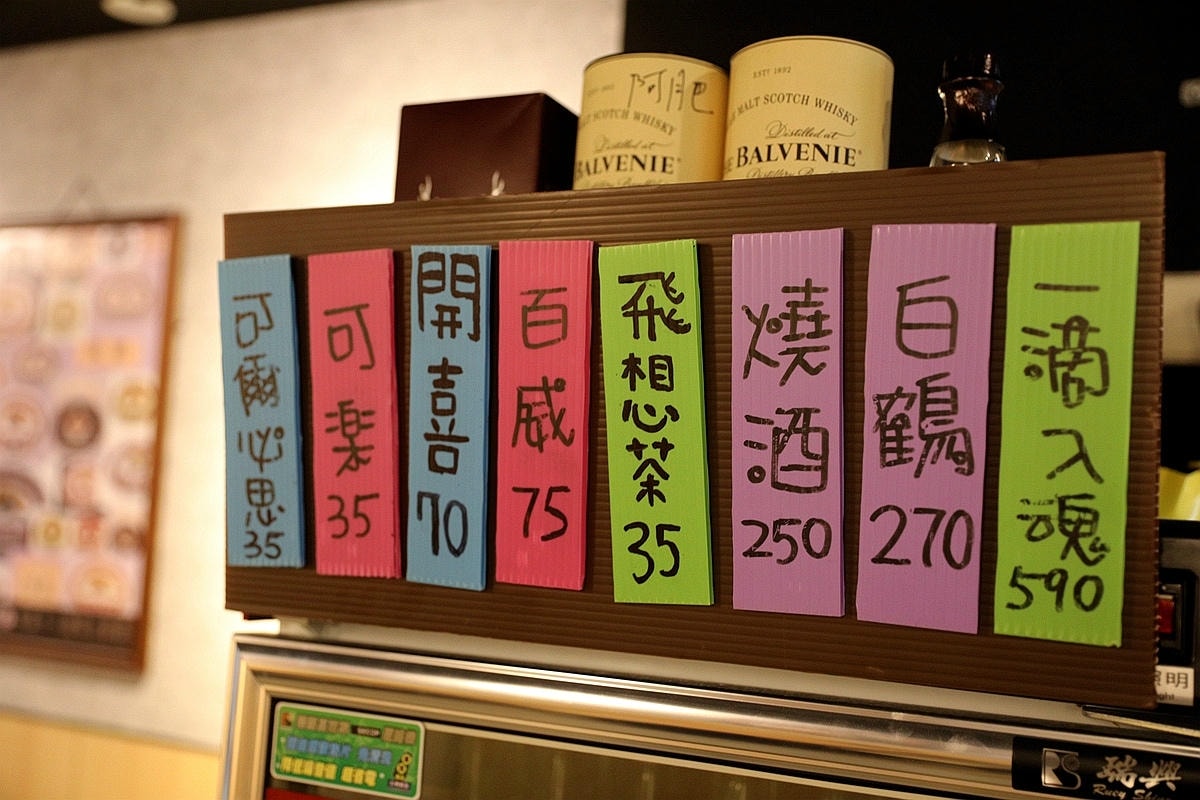 阿肥
EST? 1892
MALT SCOTCH WHISKY
Distilled at
BALVENIE
MALT SCOTCH WHISKY
Distilled at
BALVENIE
可爾必思
35
可楽
35
開喜
70
百威
75
飛想茶
35
燒酒
250
白鶴
270
一滴入魂
590
明
瑞興